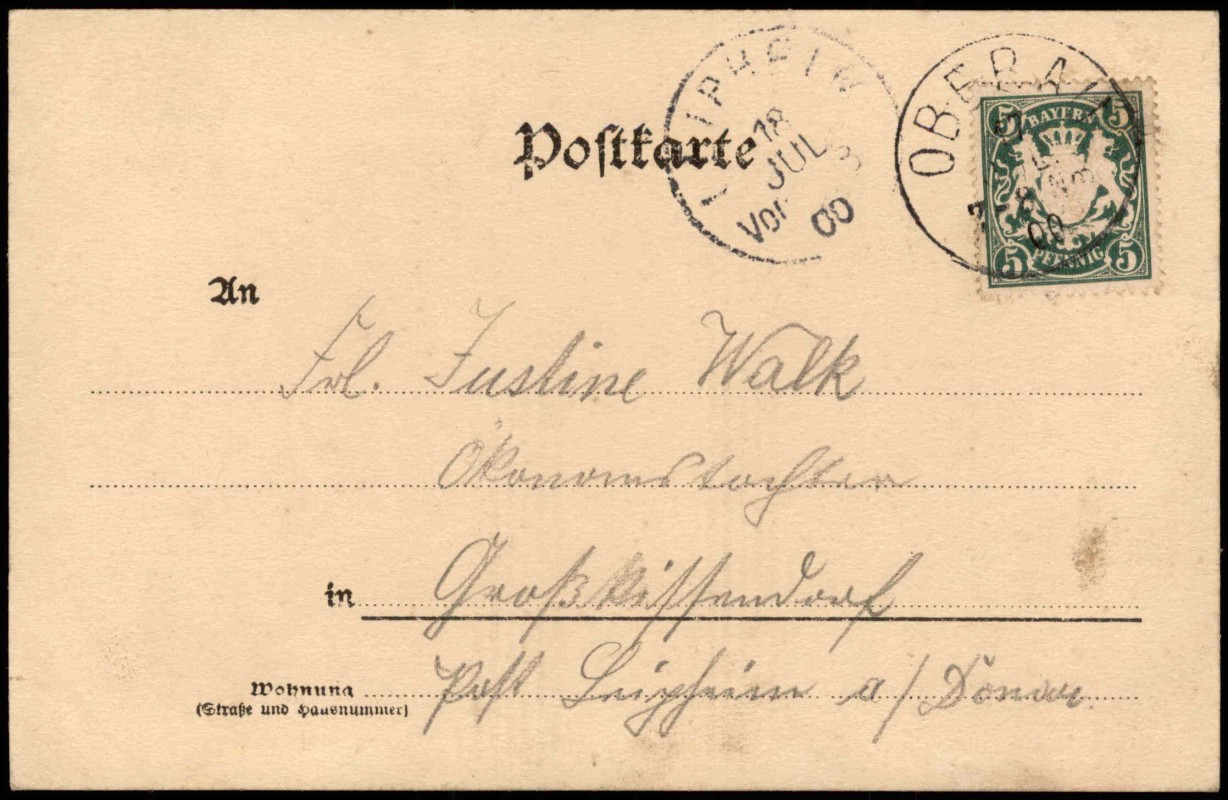 Postkarte
LEIPHEIM
18
JUL
Vor. 8
00
OBERAU
7-8
00
5 BAYERN 5
5 PFENNIG 5
An
Frl. Justine Walk
Ökonomstochter
in Großkissendorf
Wohnung Post Leipheim a/Donau.
(Straße und Hausnummer)